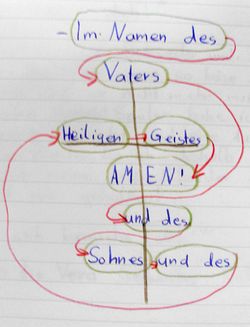 - Im Namen des
Vaters
Heiligen Geistes
AMEN!
und des
Sohnes und des